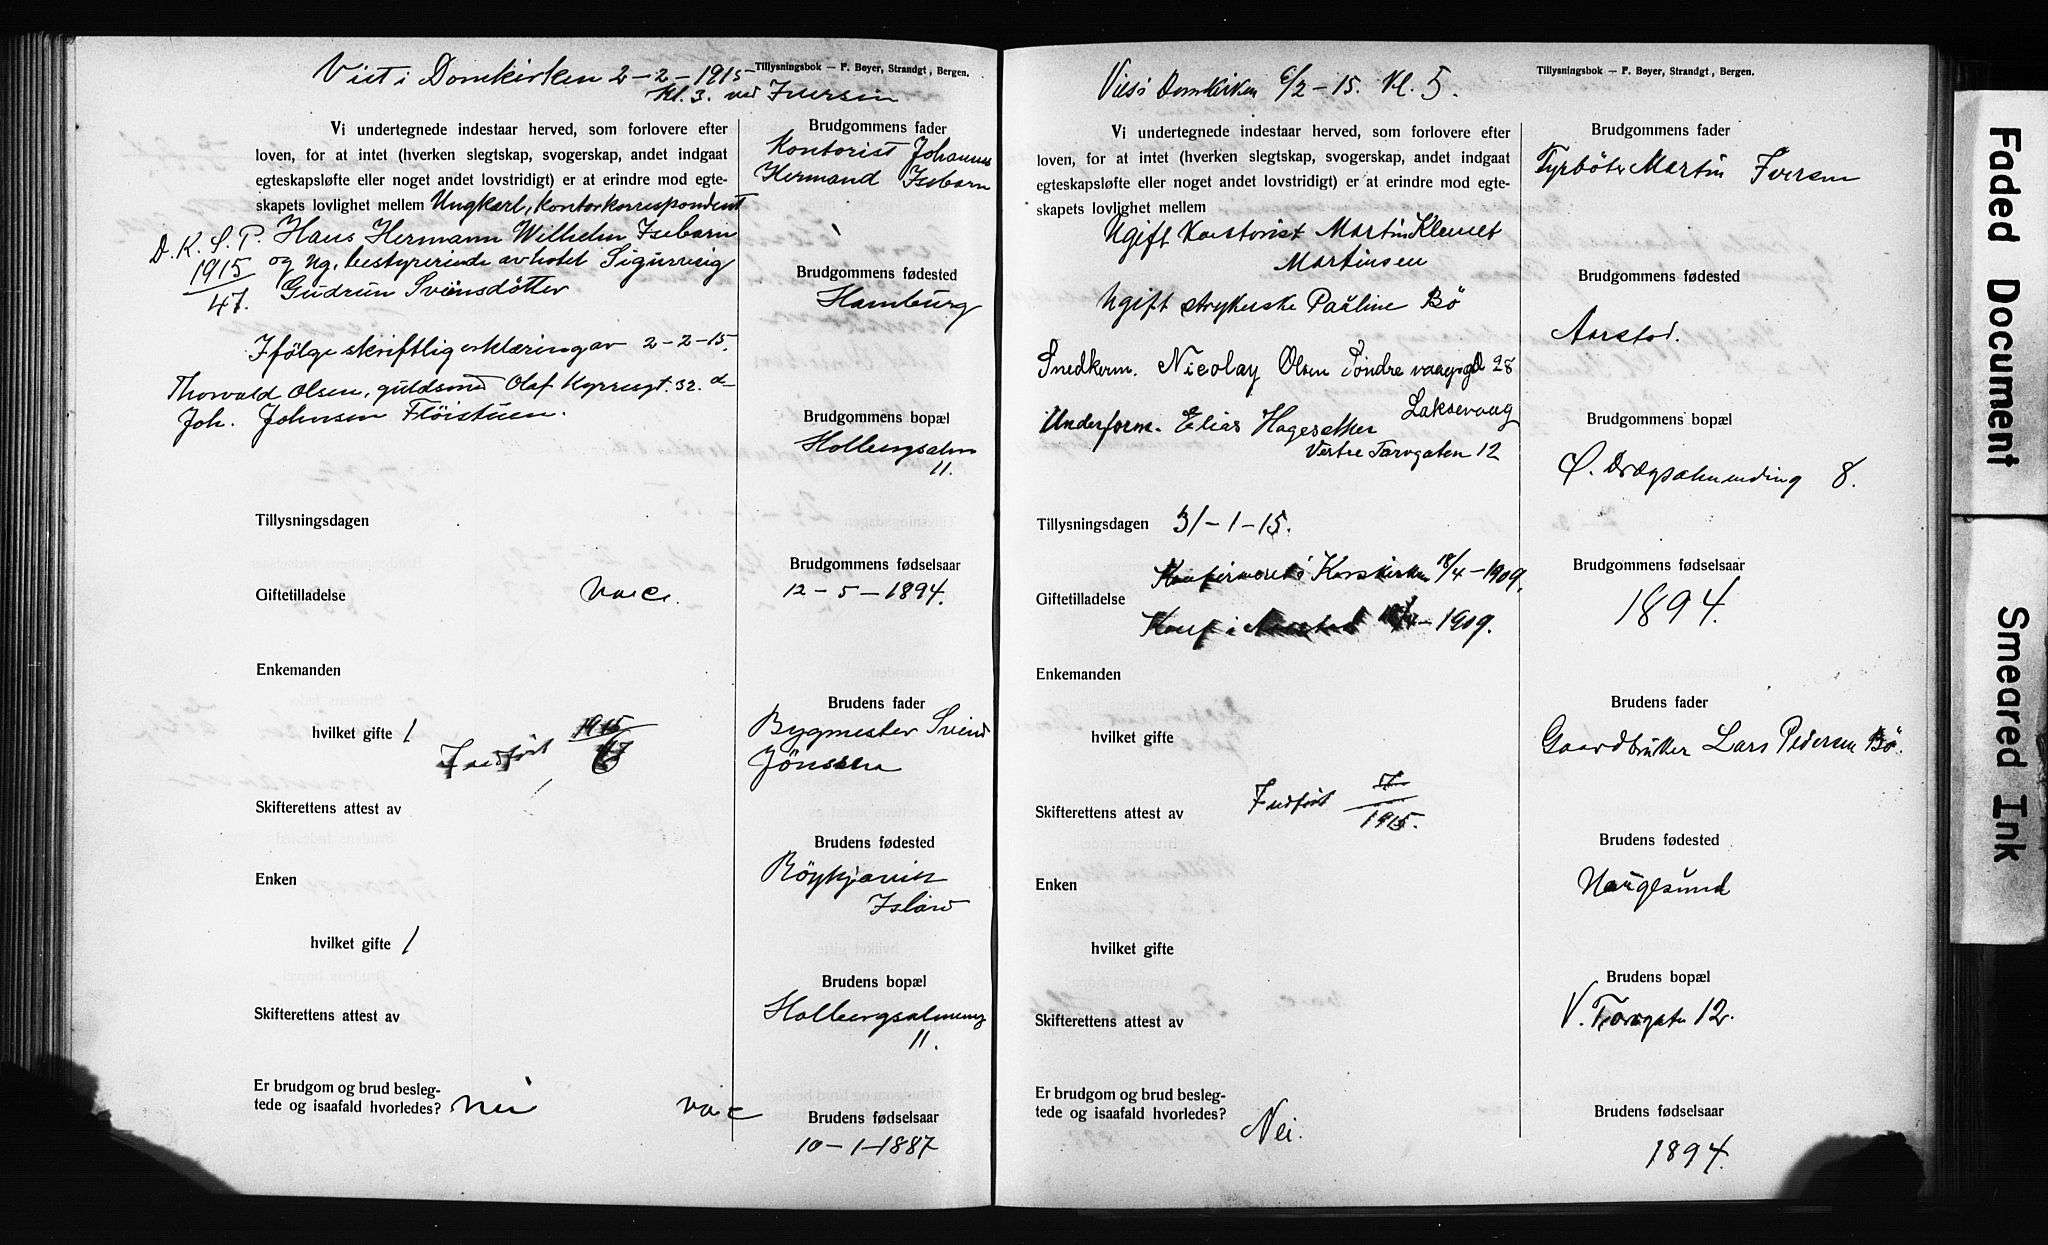 Viet i Domkirken 2-2-1915
Kl. 3. ved Iversen
Tillysningsbok — F. Beyer, Strandgt, Bergen.
Vi undertegnede indestaar herved, som forlovere efter
loven, for at intet (hverken slegtskap, svogerskap, andet indgaat
egteskapsløfte eller noget andet lovstridigt) er at erindre mod egte-
skapets lovlighet mellem Ungkarl, kontorkorrespondent
D. K. S. P. Hans Hermann Wilhelm Isebarn
1915 og Ug. bestyrerinde av hotel Sigurveig
47. Gudrun Sveinsdötter
Ifölge skriftlig erklæring av 2-2-15.
Thorvald Olsen, guldsmed Olaf Kyrresgt. 32. d
Joh. Johnsen Flöistuen.
Tillysningsdagen
Giftetilladelse
Enkemanden
hvilket gifte 1
Indført 1915
47
Skifterettens attest av
Enken
hvilket gifte 1
Skifterettens attest av
Er brudgom og brud besleg-
tede og isaafald hvorledes? Nei
Brudgommens fader
Kontorist Johannes
Hermand Isebarn
Brudgommens fødested
Hamburg
Brudgommens bopæl
Holbergsalm
11.
Brudgommens fødselsaar
12-5-1894.
Brudens fader
Bygmester Svend
Jönssen
Brudens fødested
Röykjavik
Island
Brudens bopæl
Holbergsalmenng
11.
Brudens fødselsaar
10-1-1887
Viesi Domkirken 6/2-15. Kl. 5.
Tillysningsbok — F. Beyer, Strandgt, Bergen.
Vi undertegnede indestaar herved, som forlovere efter
loven, for at intet (hverken slegtskap, svogerskap, andet indgaat
egteskapsløfte eller noget andet lovstridigt) er at erindre mod egte-
skapets lovlighet mellem
Ugift Kontorist Martin Klemet
Martinsen
Ugift strykerske Pauline Bö
Snedkerm. Nicolay Olsen Söndre vaagsgd 28
Laksevaag
Underform. Elias Hagesether
Vestre Torvgaten 12
Tillysningsdagen 31-1-15.
Konfirmert i Korskirken 18/4-1909.
Giftetilladelse
Konf i Aarstad 1909.
Enkemanden
hvilket gifte
Skifterettens attest av
Indført 7
1915.
Enken
hvilket gifte
Skifterettens attest av
Er brudgom og brud besleg-
tede og isaafald hvorledes?
Nei.
Brudgommens fader
Tyrbøter Martin Iversen
Brudgommens fødested
Aarstad.
Brudgommens bopæl
Ø. Drægsalmending 8.
Brudgommens fødselsaar
1894.
Brudens fader
Gaardbruker Lars Pedersen Bö.
Brudens fødested
Haugesund
Brudens bopæl
V. Torvgaten 12.
Brudens fødselsaar
1894.
Faded Document
Smeared Ink